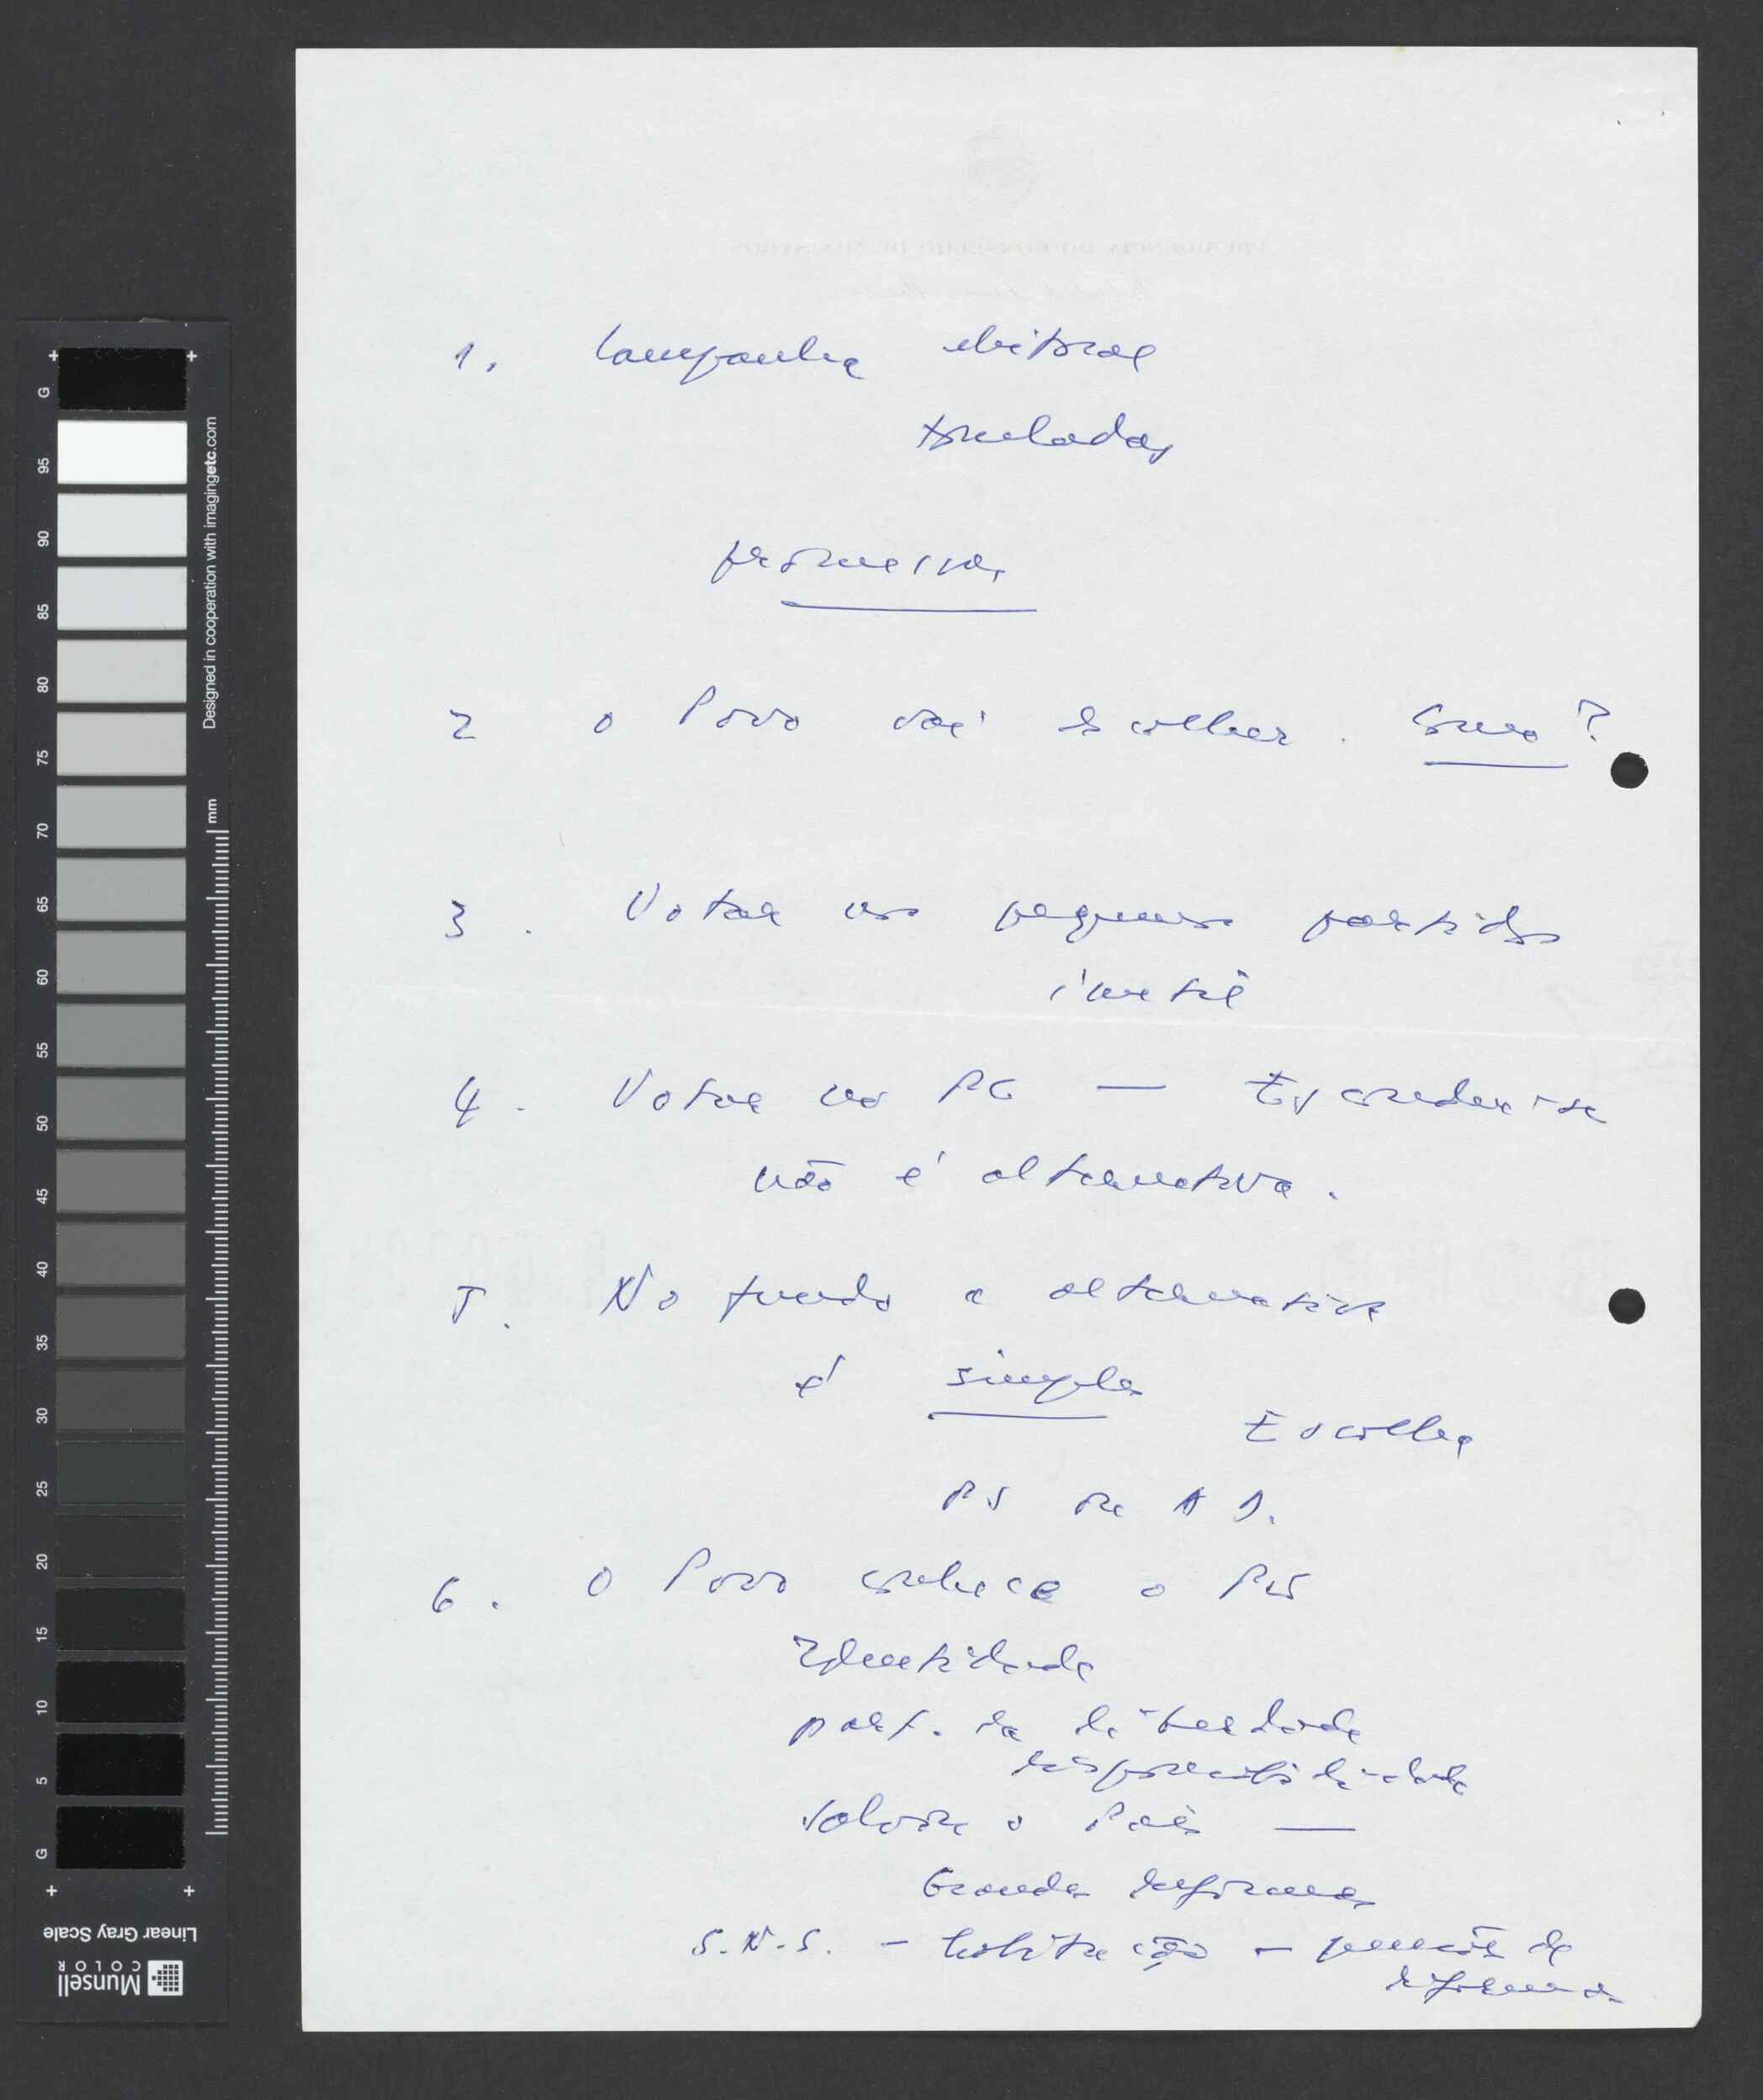 1. Campanha eleitoral
toneladas
promessas
2 O Povo vai escolher. Como?
3. Votar nos pequenos partidos
inútil
4. Votar no PC — Esconder-se
não é alternativa.
5. No fundo a alternativa
é simples
Escolha
PS ou AD.
6. O Povo conhece o PS
Identidade
part. da liberdade
responsabilidade
Salvou o País —
Grandes reformas
S.N.S. - habitação - pensões de
reforma
G 95 90 85 80 75 70 65 60 55 50 45 40 35 30 25 20 15 10 5 G
Designed in cooperation with imagingetc.com
mm
Linear Gray Scale
Munsell
COLOR